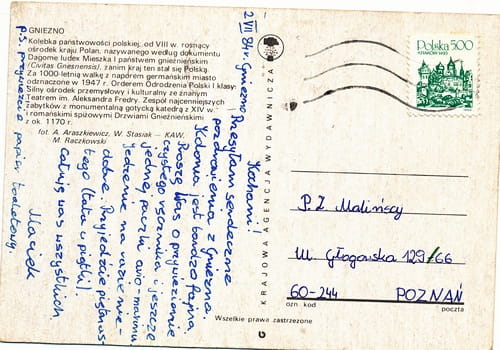 GNIEZNO
Kolebka państwowości polskiej, od VIII w. rosnący
ośrodek kraju Polan, nazywanego według dokumentu
Dagome Iudex Mieszka I państwem gnieźnieńskim
/Civitas Gnesnensis/, zanim kraj ten stał się Polską
Za 1000-letnią walkę z naporem germańskim miasto
odznaczone w 1947 r. Orderem Odrodzenia Polski I klasy.
Silny ośrodek przemysłowy i kulturalny ze znanym
Teatrem im. Aleksandra Fredry. Zespół najcenniejszych
zabytków z monumentalną gotycką katedrą z XIV w.
i romańskimi spiżowymi Drzwiami Gnieźnieńskimi
z ok. 1170 r.
fot. A. Araszkiewicz, W. Stasiak — KAW,
M. Raczkowski
2 VII 84r. Gniezno
Kochani!
Przesyłam serdeczne
pozdrowienia z Gniezna.
jest bardzo fajna.
Proszę Was o przywiezienie
czystego ręcznika i jeszcze
jednej paczki
Jedzenie na razie nie-
dobre. Przyjedźcie
tego (tata w piątki).
Całuję was wszystkich
Macek
P.S. przywieźcie papier toaletowy.
KRAJOWA AGENCJA WYDAWNICZA
Polska 500
KRAKÓW 1493
P.Z. Malińscy
Ul. Głogowska 129/66
60-244 POZNAŃ
ozn kod
poczta
Wszelkie prawa zastrzeżone